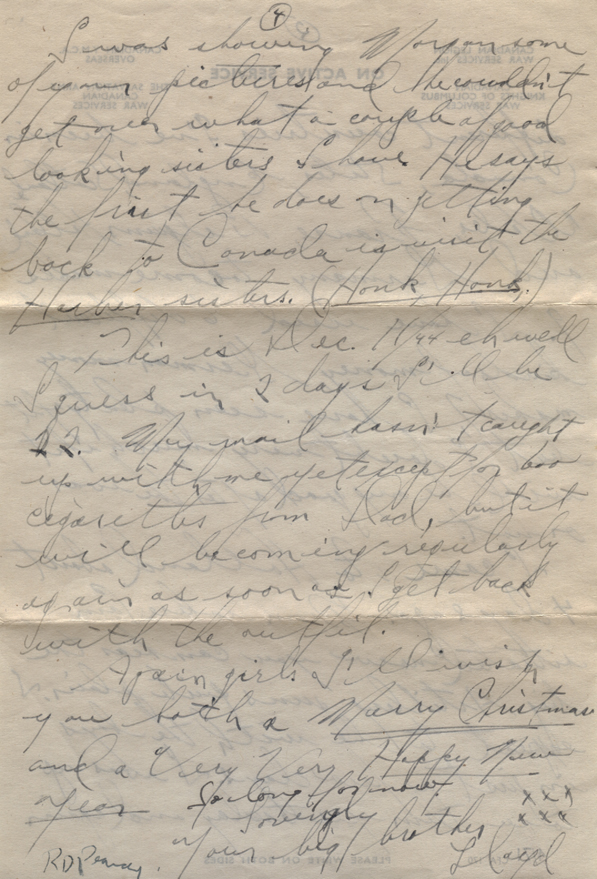 4
I was showing Morgan some
of your pictures and he couldn't
get over what a couple of good
looking sisters I have. He says
the first he does on getting
back to Canada is visit the
sisters. (Honk, Honk,)
This is Dec. 11/44 eh well
I guess in 2 days I'll be
22. My mail hasn't caught
up with me yet except for 600
cigarettes from Dad, but it
will be coming regularly
again as soon as I get back
with the outfit.
Again girls I'll wish
you both a Merry Christmas
and a Very Very Happy New
Year So long for now.
Lovingly xxx
Your big brother xxx
Lloyd
PLEASE WRITE ON BOTH SIDES
ON ACTIVE SERVICE
CANADIAN LEGION
WAR SERVICES
KNIGHTS OF COLUMBUS
WAR SERVICES
OVERSEAS
CANADIAN
WAR SERVICES